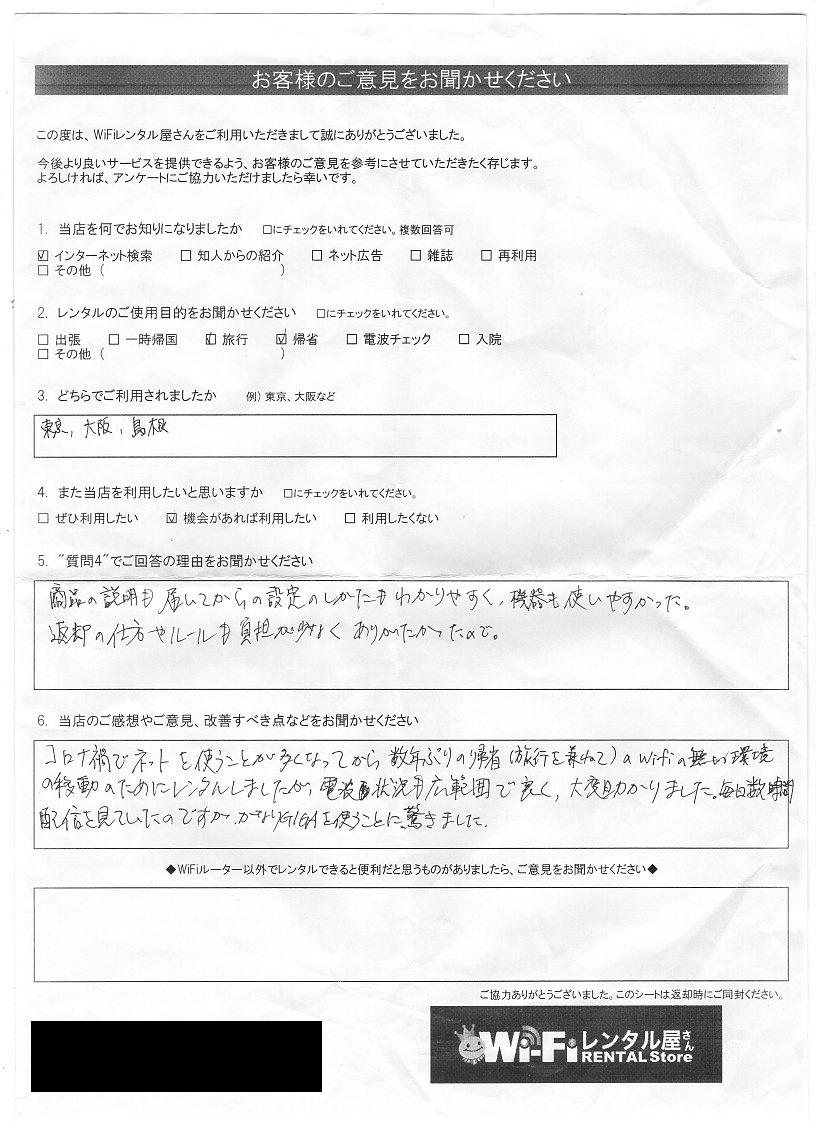 お客様のご意見をお聞かせください
この度は、WiFiレンタル屋さんをご利用いただきまして誠にありがとうございました。
今後より良いサービスを提供できるよう、お客様のご意見を参考にさせていただきたく存じます。
よろしければ、アンケートにご協力いただけましたら幸いです。
1. 当店を何でお知りになりましたか □にチェックをいれてください。複数回答可
☑ インターネット検索 □ 知人からの紹介 □ ネット広告 □ 雑誌 □ 再利用
□ その他 ( )
2. レンタルのご使用目的をお聞かせください □にチェックをいれてください。
□ 出張 □ 一時帰国 ☑ 旅行 ☑ 帰省 □ 電波チェック □ 入院
□ その他 ( )
3. どちらでご利用されましたか 例) 東京、大阪など
東京, 大阪, 島根
4. また当店を利用したいと思いますか □にチェックをいれてください。
□ ぜひ利用したい ☑ 機会があれば利用したい □ 利用したくない
5. "質問4"でご回答の理由をお聞かせください
商品の説明も届いてからの設定のしかたもわかりやすく、機器も使いやすかった。
返却の仕方やルールも負担が少なくありがたかったので。
6. 当店のご感想やご意見、改善すべき点などをお聞かせください
コロナ禍でネットを使うことが多くなってから数年ぶりの帰省(旅行を兼ねて)のWifiの無い環境
の移動のためにレンタルしましたが、電波の状況も広範囲で良く、大変助かりました。毎日数時間
配信を見ていたのですが、かなりGIGAを使うことに驚きました。
◆WiFiルーター以外でレンタルできると便利だと思うものがありましたら、ご意見をお聞かせください◆
ご協力ありがとうございました。このシートは返却時にご同封ください。
Wi-Fiレンタル屋さん
RENTAL Store